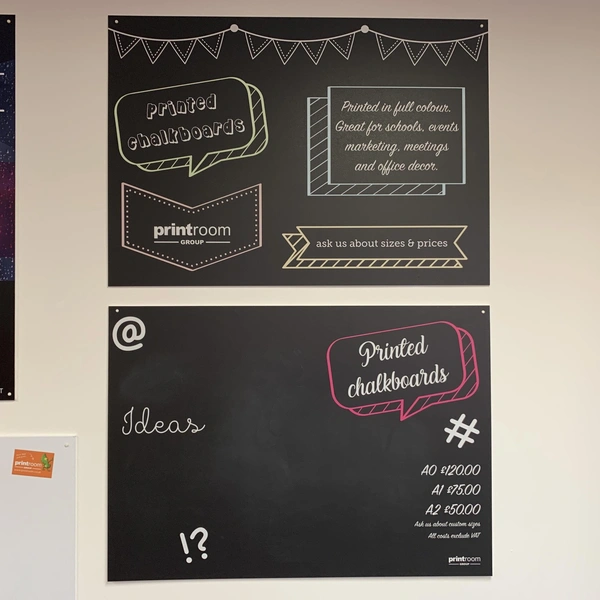 Printed
chalkboards
Printed in full colour.
Great for schools, events
marketing, meetings
and office decor.
printroom
GROUP
ask us about sizes & prices
@
Printed
chalkboards
Ideas
#
A0 £120.00
A1 £75.00
A2 £50.00
Ask us about custom sizes
All costs include VAT
!?
printroom
GROUP
printroom